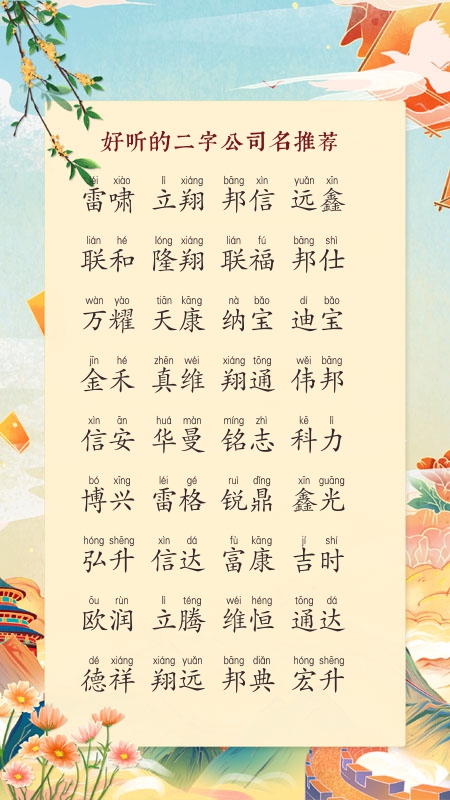 好听的二字公司名推荐
léi xiào lì xiáng bāng xìn yuǎn xīn
雷啸 立翔 邦信 远鑫
lián hé lóng xiáng lián fú bāng shì
联和 隆翔 联福 邦仕
wàn yào tiān kāng nà bǎo dí bǎo
万耀 天康 纳宝 迪宝
jīn hé zhēn wéi xiáng tōng wěi bāng
金禾 真维 翔通 伟邦
xìn ān huá màn míng zhì kē lì
信安 华曼 铭志 科力
bó xīng léi gé ruì dǐng xīn guāng
博兴 雷格 锐鼎 鑫光
hóng shēng xìn dá fù kāng jí shí
弘升 信达 富康 吉时
ōu rùn lì téng wéi héng tōng dá
欧润 立腾 维恒 通达
dé xiáng xiáng yuǎn bāng diǎn hóng shēng
德祥 翔远 邦典 宏升